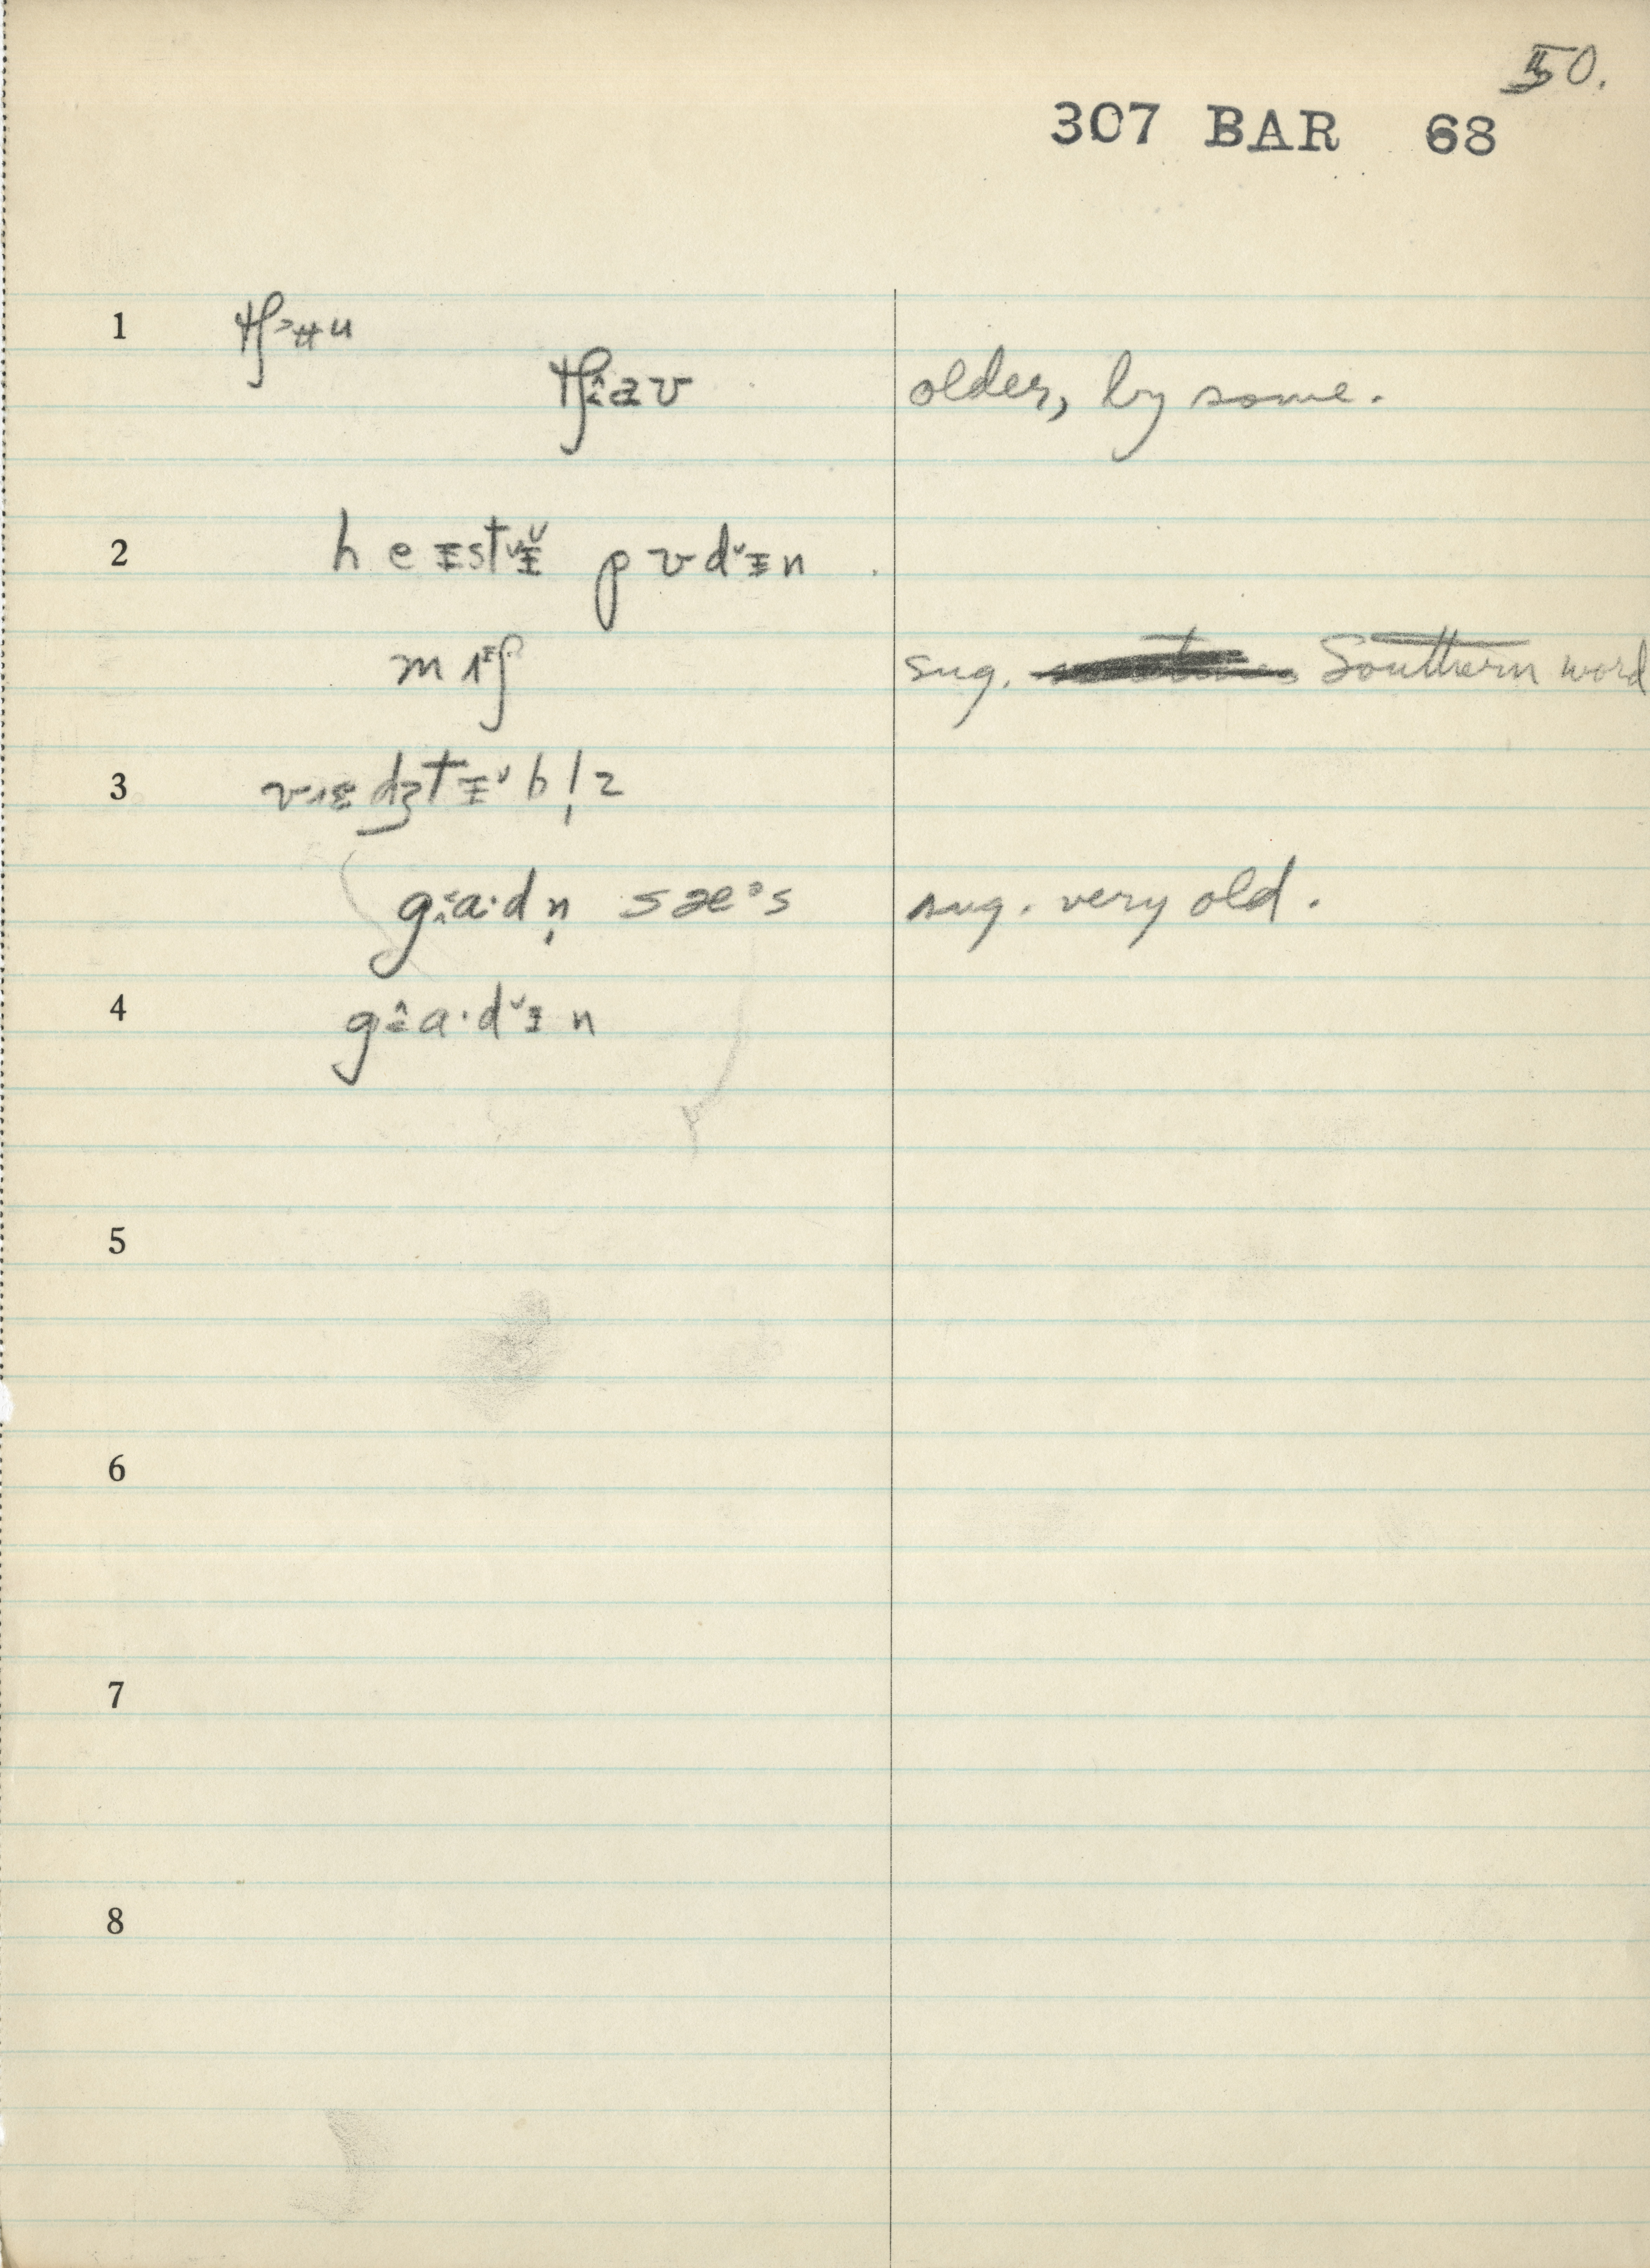 50.
307 BAR 68
1 tʃ˃ʉu
tʃɑʊ older, by some.
2 h e ɪstɪ̆ p ʊ dɪ̆n
m ʌᶤʃ sug. Southern word
3 vɛdʒtɪ̆b l̩z
gɑ·d n̩ sæᵊs sug. very old.
4 gɑ·dɪ̆n
5
6
7
8